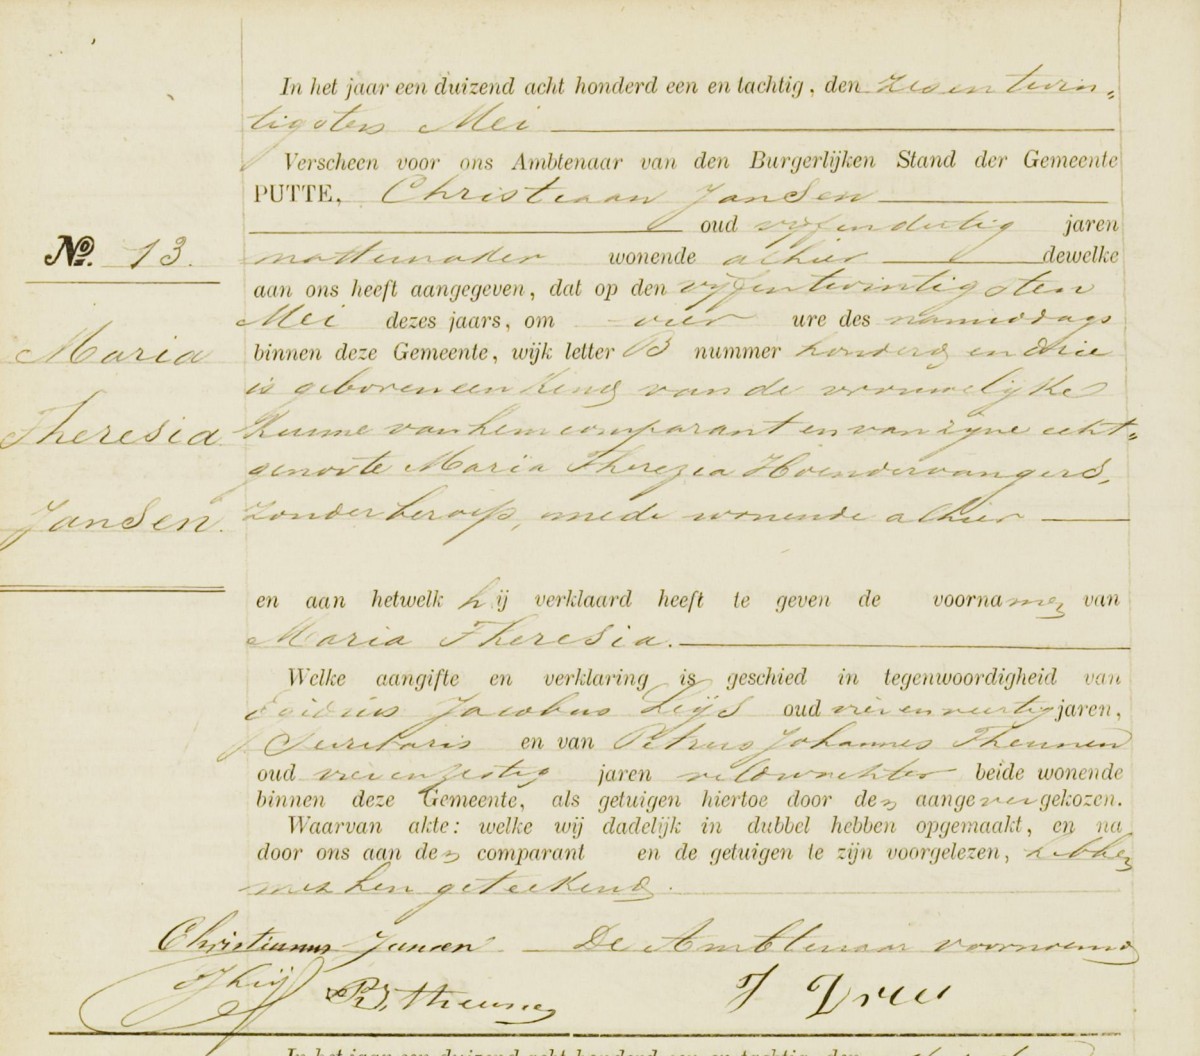 In het jaar een duizend acht honderd een en tachtig, den zes en twin„
tigsten Mei
Verscheen voor ons Ambtenaar van den Burgerlijken Stand der Gemeente
PUTTE, Christiaan Jansen
oud vyfendertig jaren
No. 13.
mattemaker wonende alhier dewelke
aan ons heeft aangegeven, dat op den vyfentwintigsten
Mei dezes jaars, om vier ure des namiddags
Maria
binnen deze Gemeente, wijk letter B nummer honderd en drie
is geboren een Kind van de vrouwelijke
Theresia
Kunne van hem comparant en van zyne echt„
genoote Maria Therezia Hoendervangers,
Jansen.
zonder beroep, mede wonende alhier
en aan hetwelk hij verklaard heeft te geven de voornamen van
Maria Theresia.
Welke aangifte en verklaring is geschied in tegenwoordigheid van
Egidius Jacobus Leijs oud vierenveertig jaren,
Secretaris en van Petrus Johannes Theunen
oud vierenzestig jaren veldwachter beide wonende
binnen deze Gemeente, als getuigen hiertoe door den aangever gekozen.
Waarvan akte: welke wij dadelijk in dubbel hebben opgemaakt, en na
door ons aan den comparant en de getuigen te zijn voorgelezen, hebben
met hen geteekend.
Christianus Jansen De Ambtenaar voornoemd
P. J. Theunen
In het jaar een duizend acht honderd een en tachtig, den